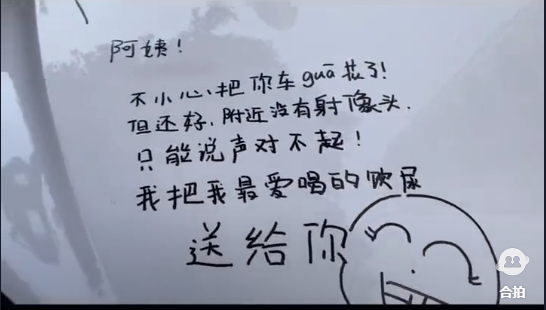 阿姨！
不小心把你车guā花了！
但还好，附近没有射像头.
只能说声对不起！
我把我最爱喝的饮尿
送给你
合拍